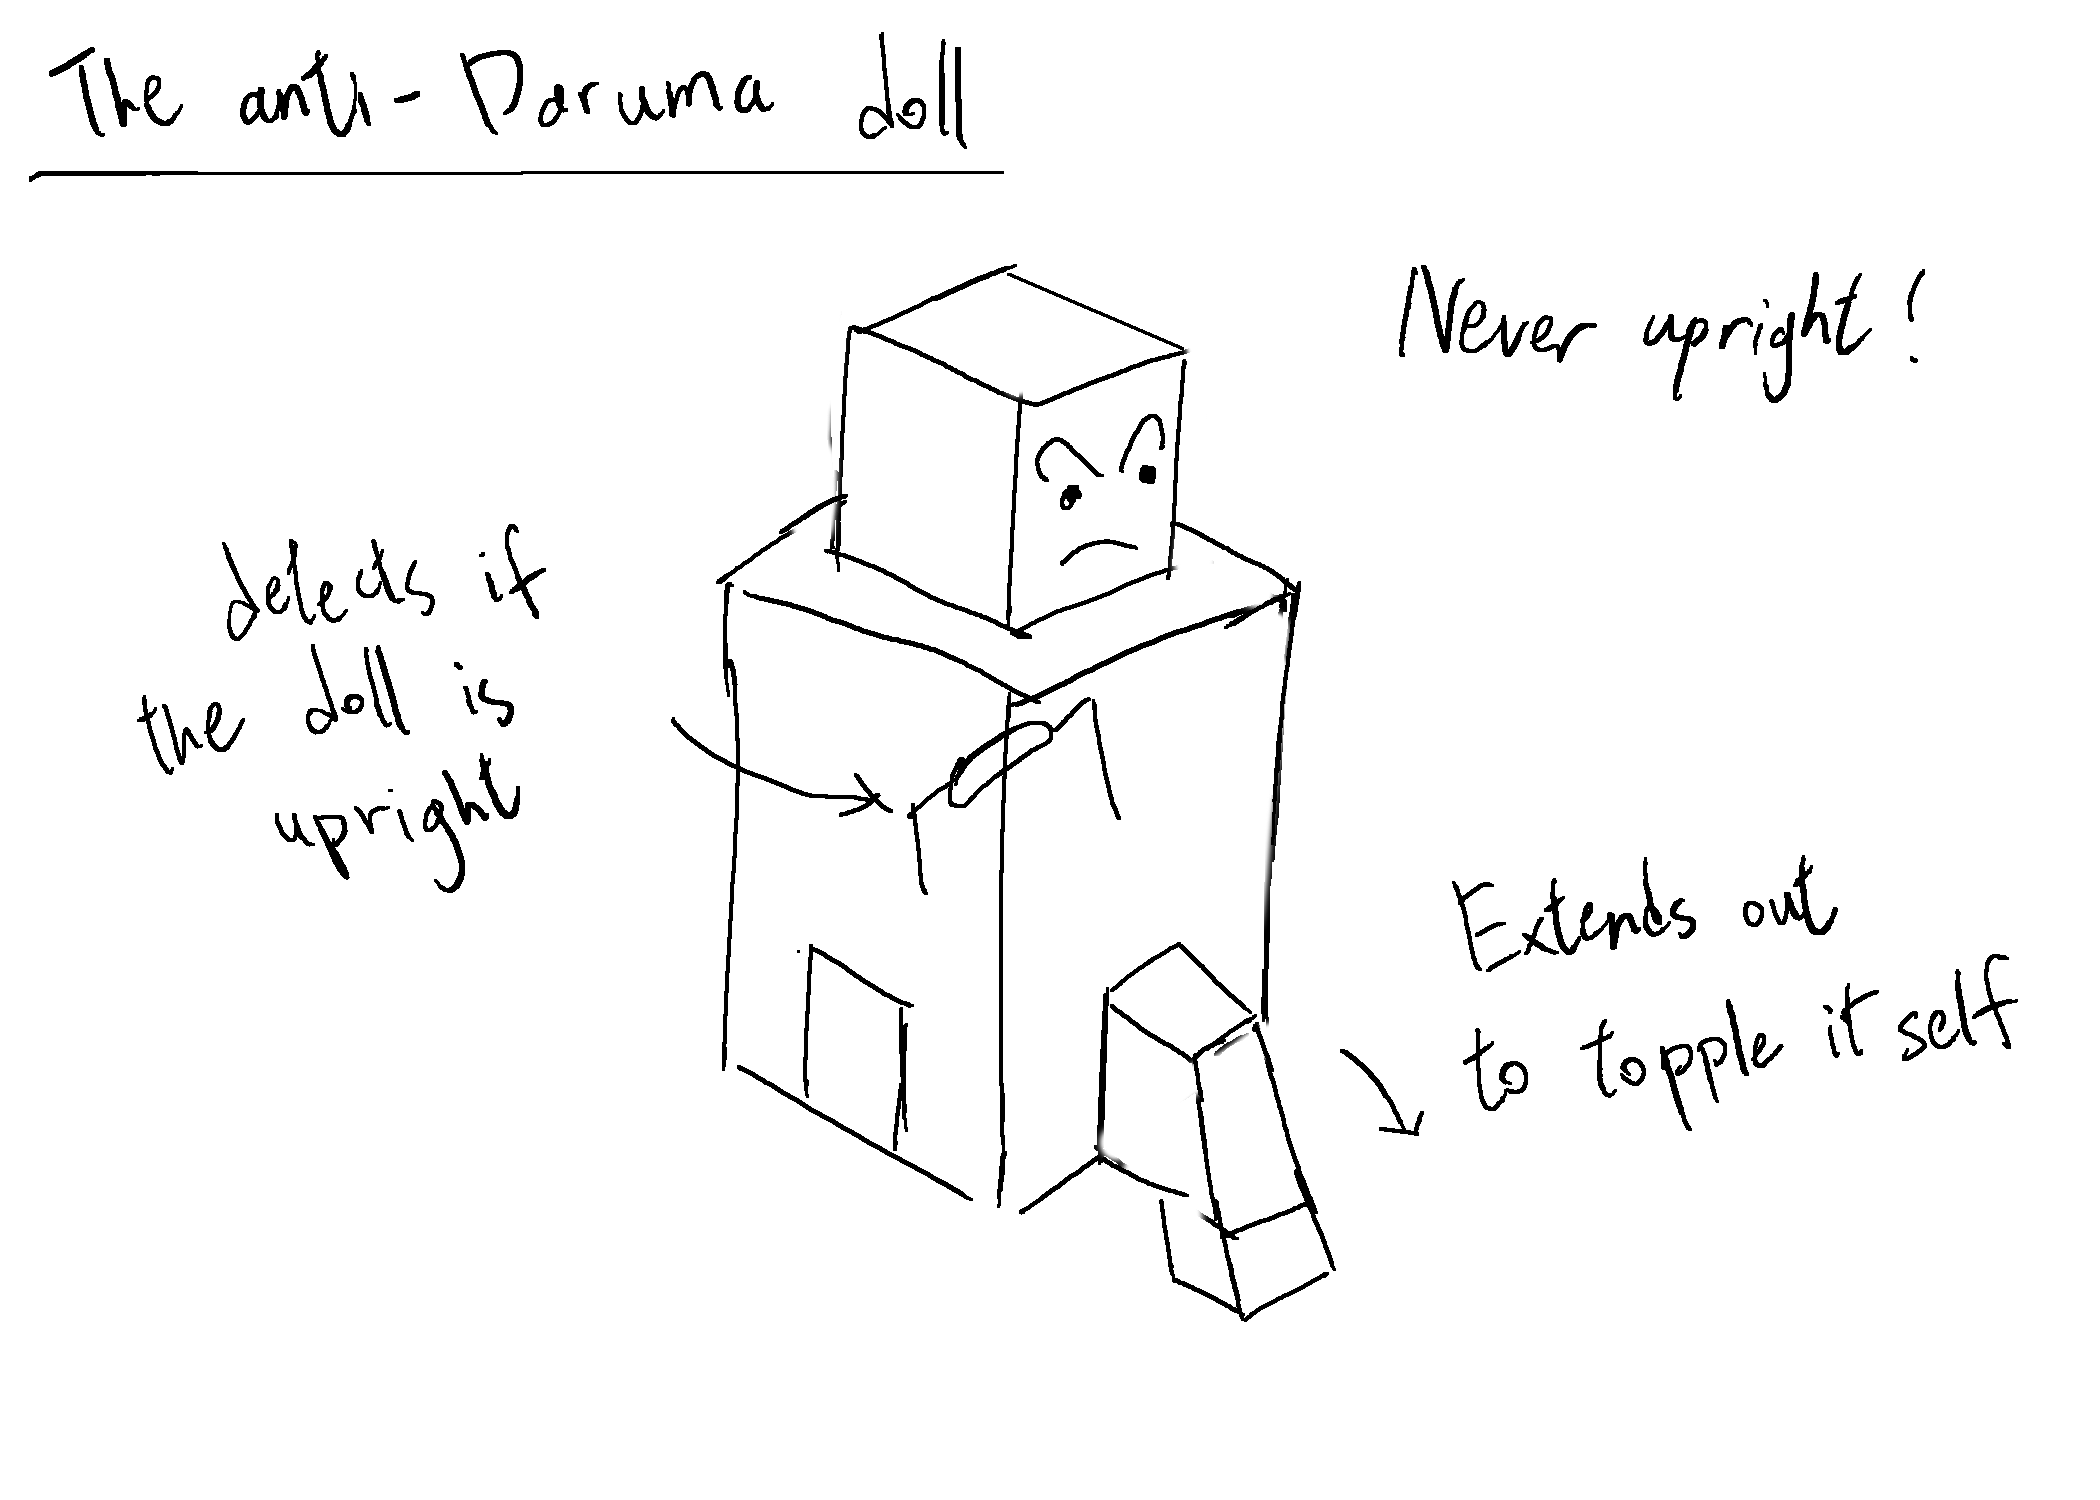 The anti-Daruma doll
Never upright!
detects if
the doll is
upright
Extends out
to topple itself